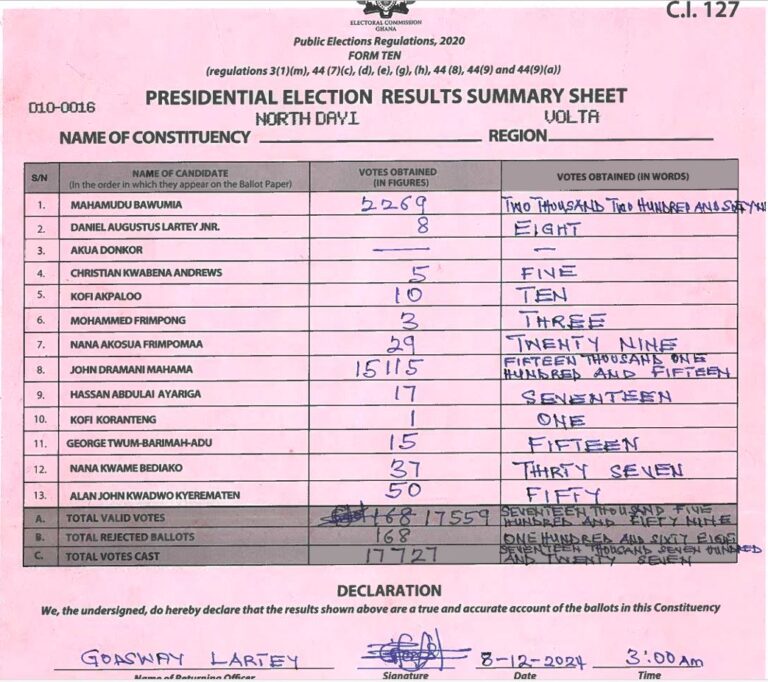 C.I. 127
ELECTORAL COMMISSION
GHANA
Public Elections Regulations, 2020
FORM TEN
(regulations 3(1)(m), 44 (7)(c), (d), (e), (g), (h), 44 (8), 44(9) and 44(9)(a))
D10-0016
PRESIDENTIAL ELECTION RESULTS SUMMARY SHEET
NAME OF CONSTITUENCY NORTH DAYI REGION VOLTA
S/N NAME OF CANDIDATE (In the order in which they appear on the Ballot Paper) VOTES OBTAINED (IN FIGURES) VOTES OBTAINED (IN WORDS)
1. MAHAMUDU BAWUMIA 2269 TWO THOUSAND TWO HUNDRED AND SIXTY NI
2. DANIEL AUGUSTUS LARTEY JNR. 8 EIGHT
3. AKUA DONKOR — —
4. CHRISTIAN KWABENA ANDREWS 5 FIVE
5. KOFI AKPALOO 10 TEN
6. MOHAMMED FRIMPONG 3 THREE
7. NANA AKOSUA FRIMPOMAA 29 TWENTY NINE
8. JOHN DRAMANI MAHAMA 15115 FIFTEEN THOUSAND ONE HUNDRED AND FIFTEEN
9. HASSAN ABDULAI AYARIGA 17 SEVENTEEN
10. KOFI KORANTENG 1 ONE
11. GEORGE TWUM-BARIMAH-ADU 15 FIFTEEN
12. NANA KWAME BEDIAKO 37 THIRTY SEVEN
13. ALAN JOHN KWADWO KYEREMATEN 50 FIFTY
A. TOTAL VALID VOTES 168 17559 SEVENTEEN THOUSAND FIVE HUNDRED AND FIFTY NINE
B. TOTAL REJECTED BALLOTS 168 ONE HUNDRED AND SIXTY EIGHT
C. TOTAL VOTES CAST 17727 SEVENTEEN THOUSAND SEVEN HUNDRED AND TWENTY SEVEN
DECLARATION
We, the undersigned, do hereby declare that the results shown above are a true and accurate account of the ballots in this Constituency
GOASWAY LARTEY 8-12-2024 3:00 AM
Name of Returning Officer Signature Date Time